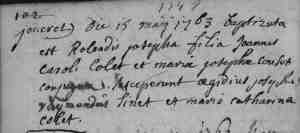 102
die 15 maij 1763 Baptizata
est Rolendis josepha filia Joannis
Caroli Colet et maria josepha
conjugum. susceperunt ægidius joseph
raymundus linet et maria catharina
Colet.